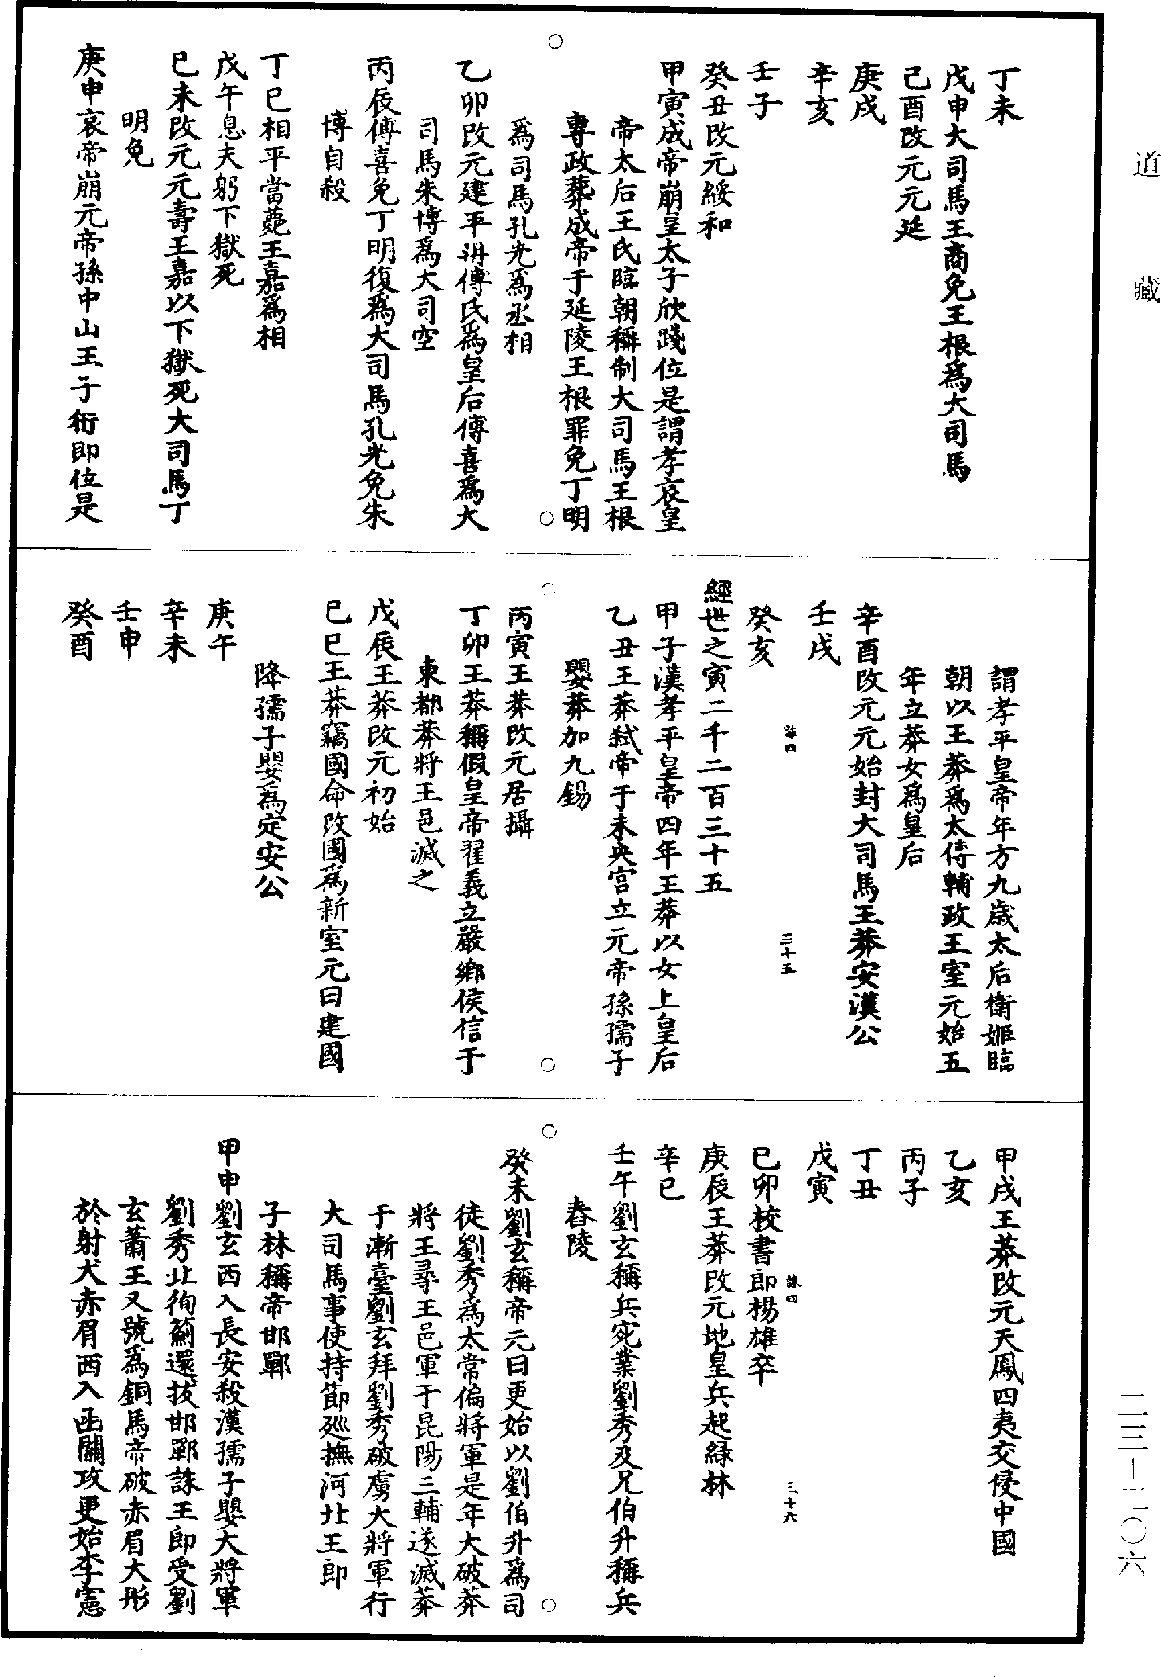 道藏
丁未
戊申大司馬王商免王根為大司馬
己酉改元元延
庚戌
辛亥
壬子
癸丑改元綏和
甲寅成帝崩皇太子欣踐位是謂孝哀皇
帝太后王氏臨朝稱制大司馬王根
專政葬成帝于延陵王根罪免丁明
爲司馬孔光爲丞相
乙卯改元建平冊傅氏爲皇后傅喜爲大
司馬朱博爲大司空
丙辰傅喜免丁明復爲大司馬孔光免朱
博自殺
丁巳相平當薨王嘉爲相
戊午息夫躬下獄死
巳未改元元壽王嘉以下獄死大司馬丁
明免
庚申哀帝崩元帝孫中山王子衎即位是
謂孝平皇帝年方九歲太后衛姬臨
朝以王莽爲太傅輔政王室元始五
年立莽女爲皇后
辛酉改元元始封大司馬王莽安漢公
壬戌
癸亥
詠四
三十五
經世之寅二千二百三十五
甲子漢孝平皇帝四年王莽以女上皇后
乙丑王莽弒帝于未央宫立元帝孫孺子
嬰莽加九錫
丙寅王莽改元居攝
丁卯王莽稱假皇帝翟義立嚴鄉侯信于
東都莽將王邑滅之
戊辰王莽改元初始
巳巳王莽竊國命改國爲新室元曰建國
降孺子嬰爲定安公
庚午
辛未
壬申
癸酉
甲戌王莽改元天鳳四夷交侵中國
乙亥
丙子
丁丑
戊寅
詠四
三十六
巳卯校書郎楊雄卒
庚辰王莽改元地皇兵起緑林
辛巳
壬午劉玄稱兵宛業劉秀及兄伯升稱兵
舂陵
癸未劉玄稱帝元曰更始以劉伯升爲司
徒劉秀爲太常偏將軍是年大破莽
將王尋王邑軍于昆陽三輔遂滅莽
于漸臺劉玄拜劉秀破虜大將軍行
大司馬事使持節廵撫河北王郎
子林稱帝邯鄲
甲申劉玄西入長安殺漢孺子嬰大將軍
劉秀北徇薊還拔邯鄲誅王郎受劉
玄蕭王又號爲銅馬帝破赤眉大彤
於射犬赤眉西入函關攻更始李憲
二三—二〇六